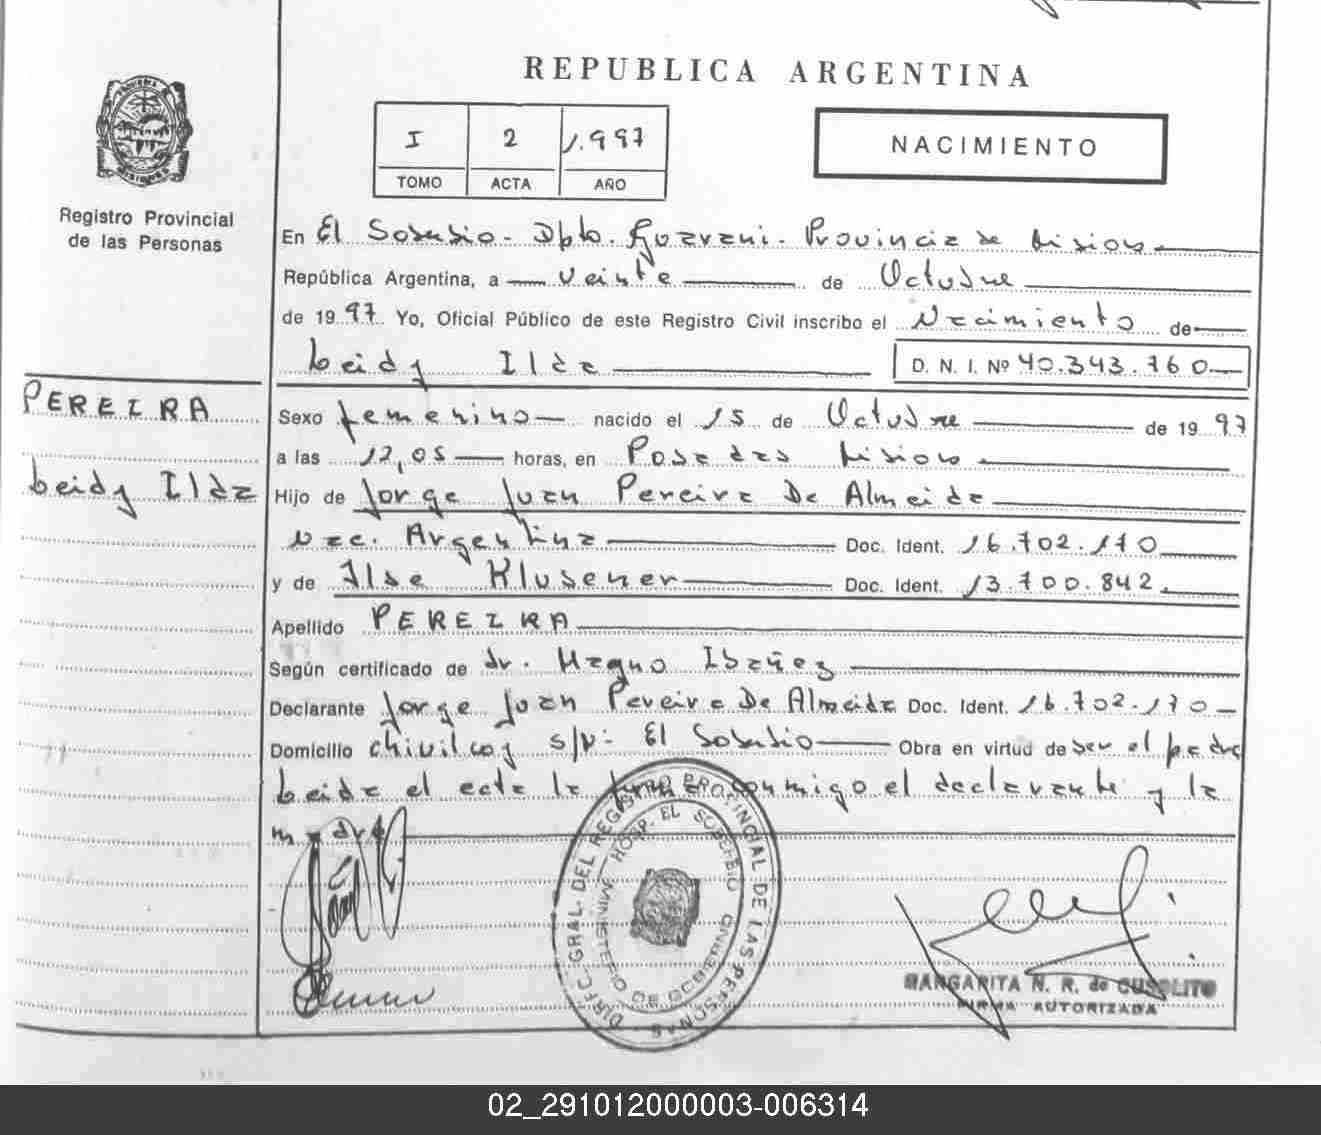 REPUBLICA ARGENTINA
I 2 1.997
TOMO ACTA AÑO
NACIMIENTO
Registro Provincial
de las Personas
En El Soberbio - Dpto. Guarani - Provincia de Misiones
República Argentina, a veinte de Octubre
de 1997 Yo, Oficial Público de este Registro Civil inscribo el Nacimiento de
Leidy Ilda D. N. I. Nº 40.343.760
PEREIRA
Leidy Ilda
Sexo femenino nacido el 15 de Octubre de 1997
a las 12,05 horas, en Posadas Misiones
Hijo de Jorge Juan Pereira De Almeida
Nac. Argentina Doc. Ident. 16.702.170
y de Ilse Klusener Doc. Ident. 13.700.842
Apellido PEREIRA
Según certificado de dr. Magno Ibañez
Declarante Jorge Juan Pereira De Almeida Doc. Ident. 16.702.170
Domicilio Chivilcoy s/n: El Soberbio Obra en virtud de ser el padre
Leida el acta la firma conmigo el declarante y la
madre
DIREC. GRAL. DEL REGISTRO PROVINCIAL DE LAS PERSONAS
MINISTERIO DE GOBIERNO
HOSP. EL SOBERBIO
MARGARITA N. R. de CUSOLITO
FIRMA AUTORIZADA
02_291012000003-006314